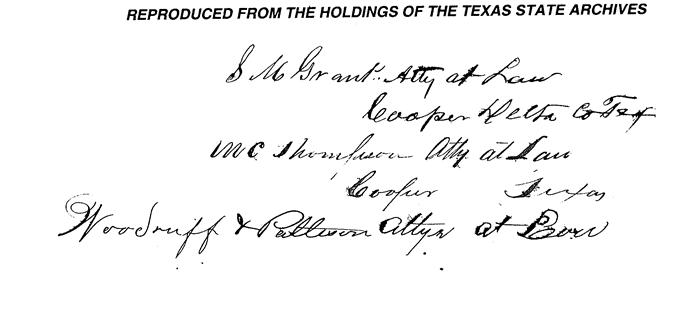 REPRODUCED FROM THE HOLDINGS OF THE TEXAS STATE ARCHIVES
S M Grant. Atty at Law
Cooper Delta Co Tex
Mc Thompson Atty at Law
Cooper Texas
Woodruff & Patteson Attys at